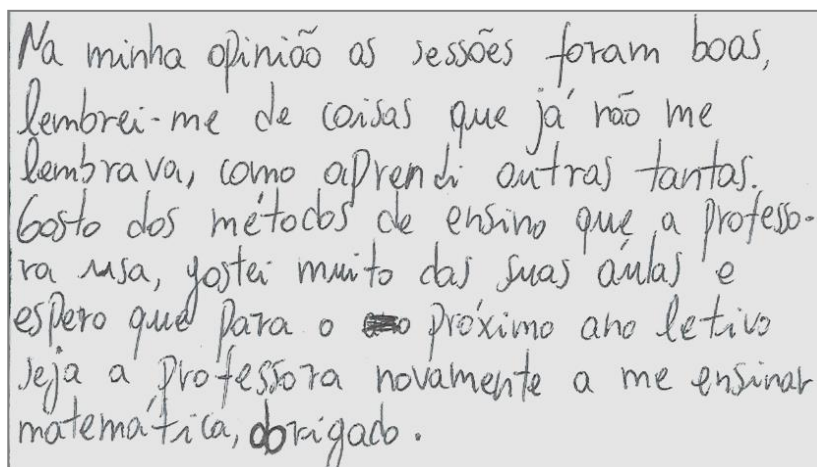 Na minha opinião as sessões foram boas,
lembrei-me de coisas que já não me
lembrava, como aprendi outras tantas.
Gosto dos métodos de ensino que a professo-
ra usa, gostei muito das suas áulas e
espero que para o próximo ano letivo
seja a professora novamente a me ensinar
matemática, obrigado.